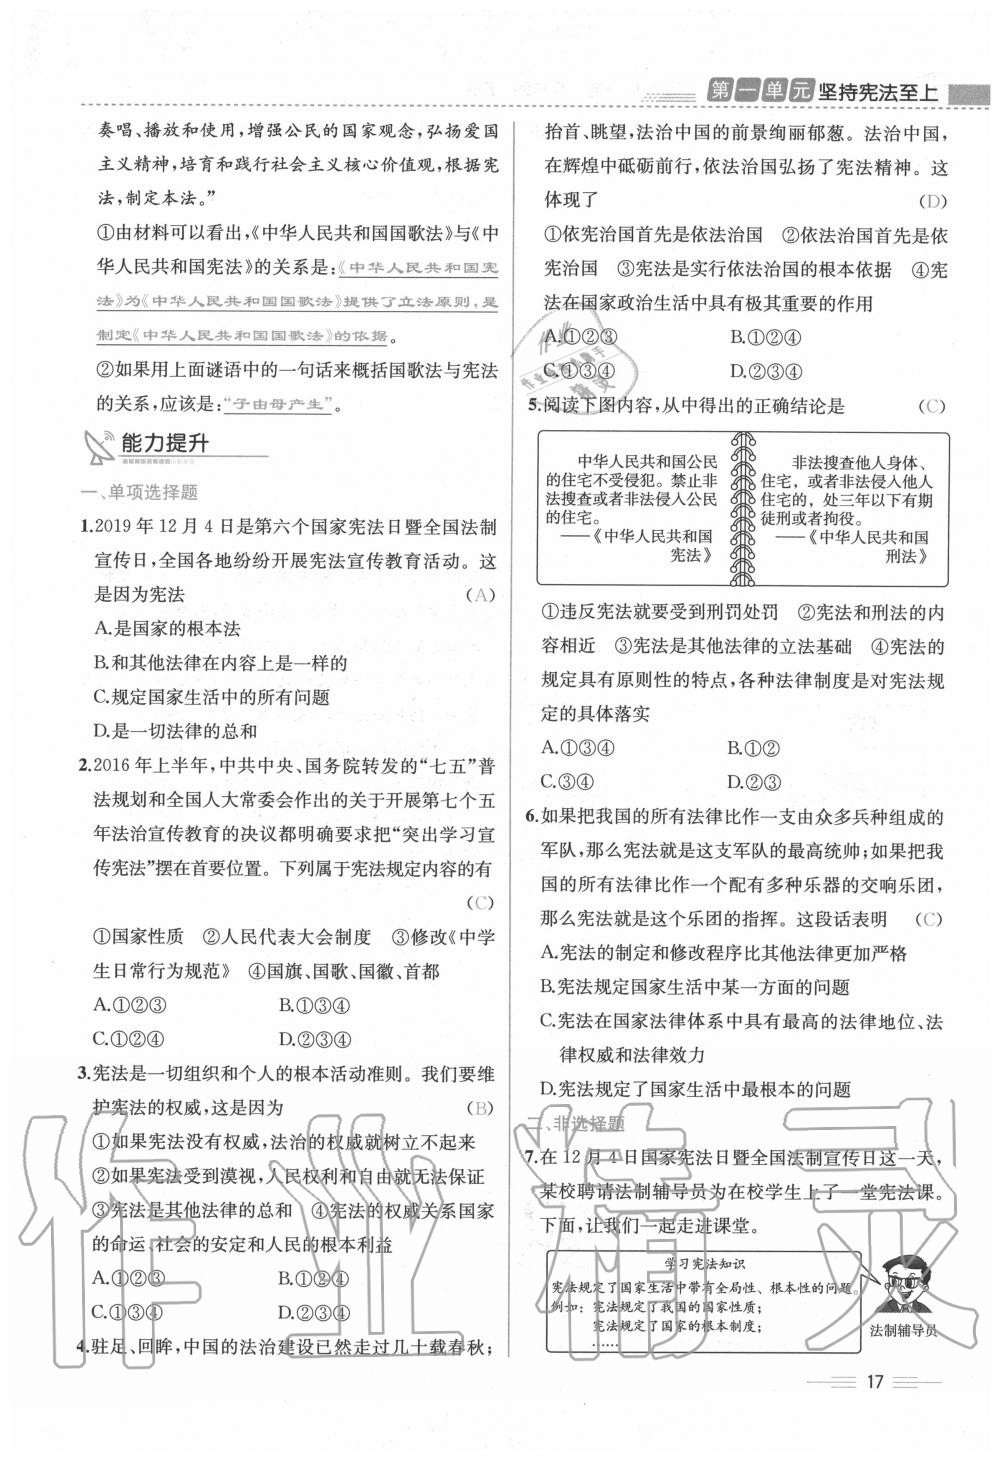 第一单元 坚持宪法至上
奏唱、播放和使用,增强公民的国家观念,弘扬爱国
主义精神,培育和践行社会主义核心价值观,根据宪
法,制定本法。”
①由材料可以看出,《中华人民共和国国歌法》与《中
华人民共和国宪法》的关系是:《中华人民共和国宪
法》为《中华人民共和国国歌法》提供了立法原则,是
制定《中华人民共和国国歌法》的依据。
②如果用上面谜语中的一句话来概括国歌法与宪法
的关系,应该是:“子由母产生”。
能力提升
一、单项选择题
1.2019年12月4日是第六个国家宪法日暨全国法制
宣传日,全国各地纷纷开展宪法宣传教育活动。这
是因为宪法 (A)
A.是国家的根本法
B.和其他法律在内容上是一样的
C.规定国家生活中的所有问题
D.是一切法律的总和
2.2016年上半年,中共中央、国务院转发的“七五”普
法规划和全国人大常委会作出的关于开展第七个五
年法治宣传教育的决议都明确要求把“突出学习宣
传宪法”摆在首要位置。下列属于宪法规定内容的有
(C)
①国家性质 ②人民代表大会制度 ③修改《中学
生日常行为规范》 ④国旗、国歌、国徽、首都
A.①②③ B.①③④
C.①②④ D.②③④
3.宪法是一切组织和个人的根本活动准则。我们要维
护宪法的权威,这是因为 (B)
①如果宪法没有权威,法治的权威就树立不起来
②如果宪法受到漠视,人民权利和自由就无法保证
③宪法是其他法律的总和 ④宪法的权威关系国家
的命运、社会的安定和人民的根本利益
A.①②③ B.①②④
C.①③④ D.②③④
4.驻足、回眸,中国的法治建设已然走过几十载春秋;
抬首、眺望,法治中国的前景绚丽郁葱。法治中国,
在辉煌中砥砺前行,依法治国弘扬了宪法精神。这
体现了 (D)
①依宪治国首先是依法治国 ②依法治国首先是依
宪治国 ③宪法是实行依法治国的根本依据 ④宪
法在国家政治生活中具有极其重要的作用
A.①②③ B.①②④
C.①③④ D.②③④
5.阅读下图内容,从中得出的正确结论是 (C)
中华人民共和国公民
的住宅不受侵犯。禁止非
法搜查或者非法侵入公民
的住宅。
——《中华人民共和国
宪法》
非法搜查他人身体、
住宅,或者非法侵入他人
住宅的,处三年以下有期
徒刑或者拘役。
——《中华人民共和国
刑法》
①违反宪法就要受到刑罚处罚 ②宪法和刑法的内
容相近 ③宪法是其他法律的立法基础 ④宪法的
规定具有原则性的特点,各种法律制度是对宪法规
定的具体落实
A.①③④ B.①②
C.③④ D.②③④
6.如果把我国的所有法律比作一支由众多兵种组成的
军队,那么宪法就是这支军队的最高统帅;如果把我
国的所有法律比作一个配有多种乐器的交响乐团,
那么宪法就是这个乐团的指挥。这段话表明 (C)
A.宪法的制定和修改程序比其他法律更加严格
B.宪法规定国家生活中某一方面的问题
C.宪法在国家法律体系中具有最高的法律地位、法
律权威和法律效力
D.宪法规定了国家生活中最根本的问题
二、非选择题
7.在12月4日国家宪法日暨全国法制宣传日这一天,
某校聘请法制辅导员为在校学生上了一堂宪法课。
下面,让我们一起走进课堂。
学习宪法知识
宪法规定了国家生活中带有全局性、根本性的问题。
例如:宪法规定了我国的国家性质;
宪法规定了国家的根本制度;
……
法制辅导员
17
作业精灵